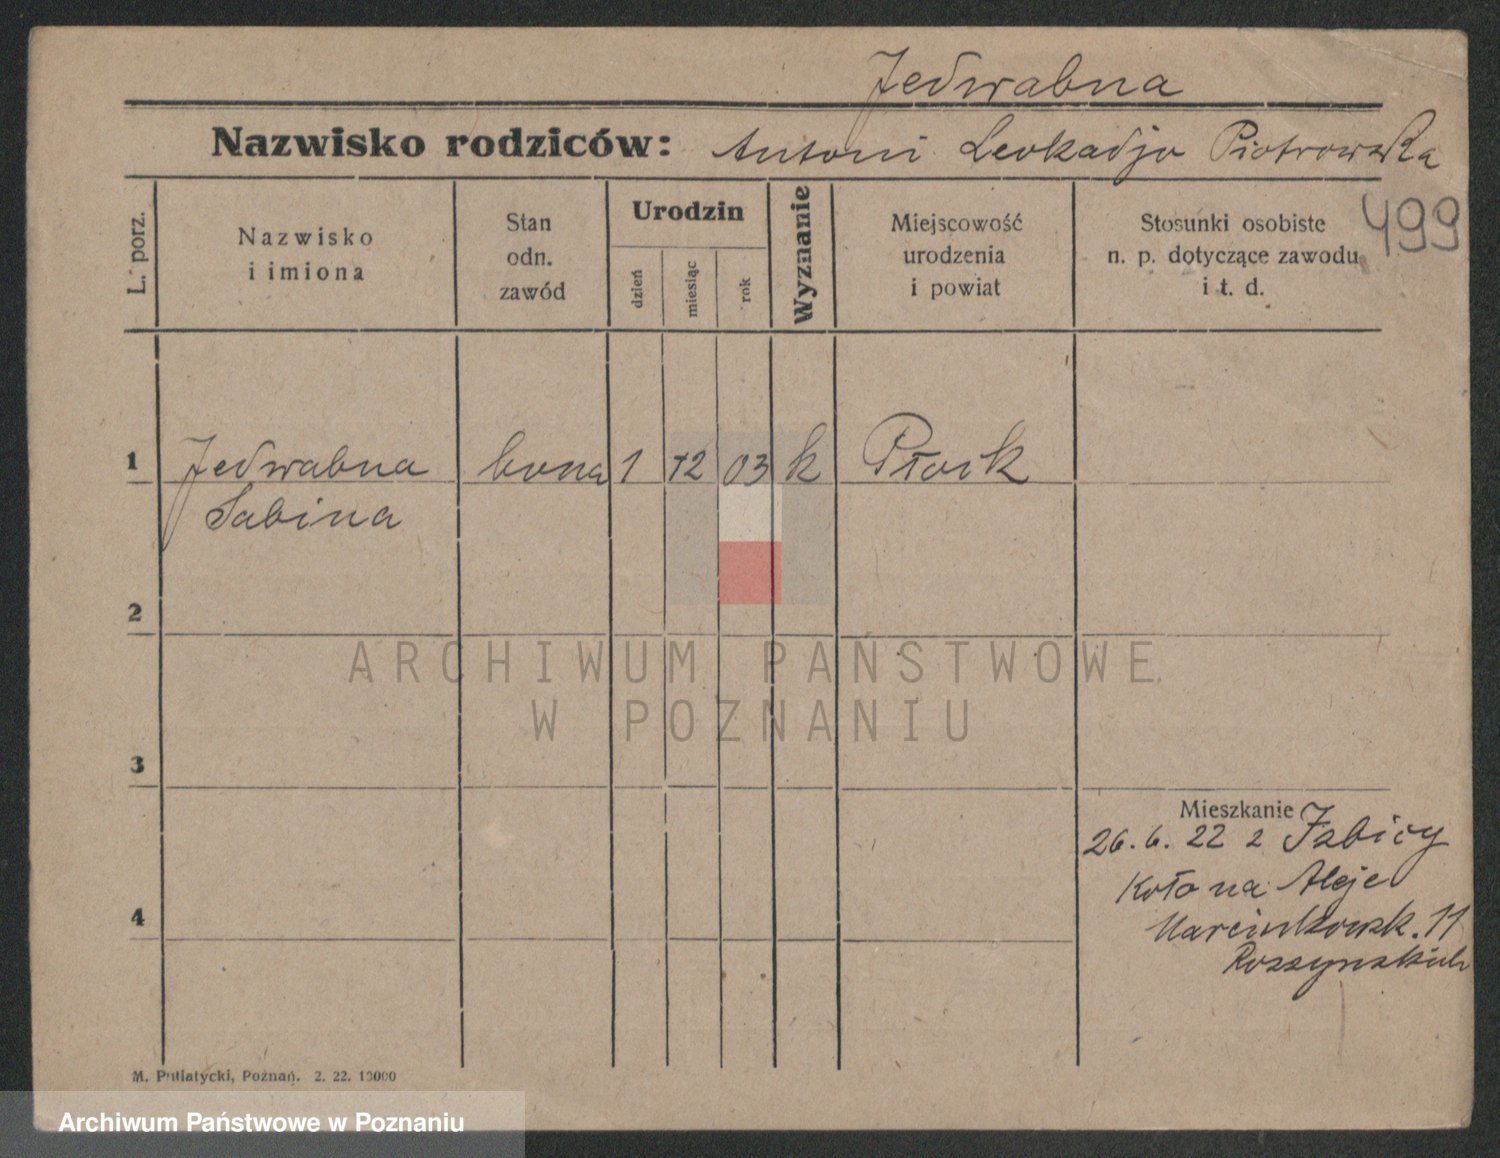 Jedwabna
Nazwisko rodziców: Antoni Leokadja Piotrowska
499
L. porz.
Nazwisko
i imiona
Stan
odn.
zawód
Urodzin
dzień
miesiąc
rok
Wyznanie
Miejscowość
urodzenia
i powiat
Stosunki osobiste
n. p. dotyczące zawodu
i t. d.
1 Jedwabna bona 1 12 03 k Płock
Sabina
2
ARCHIWUM PAŃSTWOWE
W POZNANIU
3
Mieszkanie
26. 6. 22 z Izbicy
Koło na Aleje
4
Marcinkowsk. 11
M. Putiatycki, Poznań. 2. 22. 10000
Archiwum Państwowe w Poznaniu